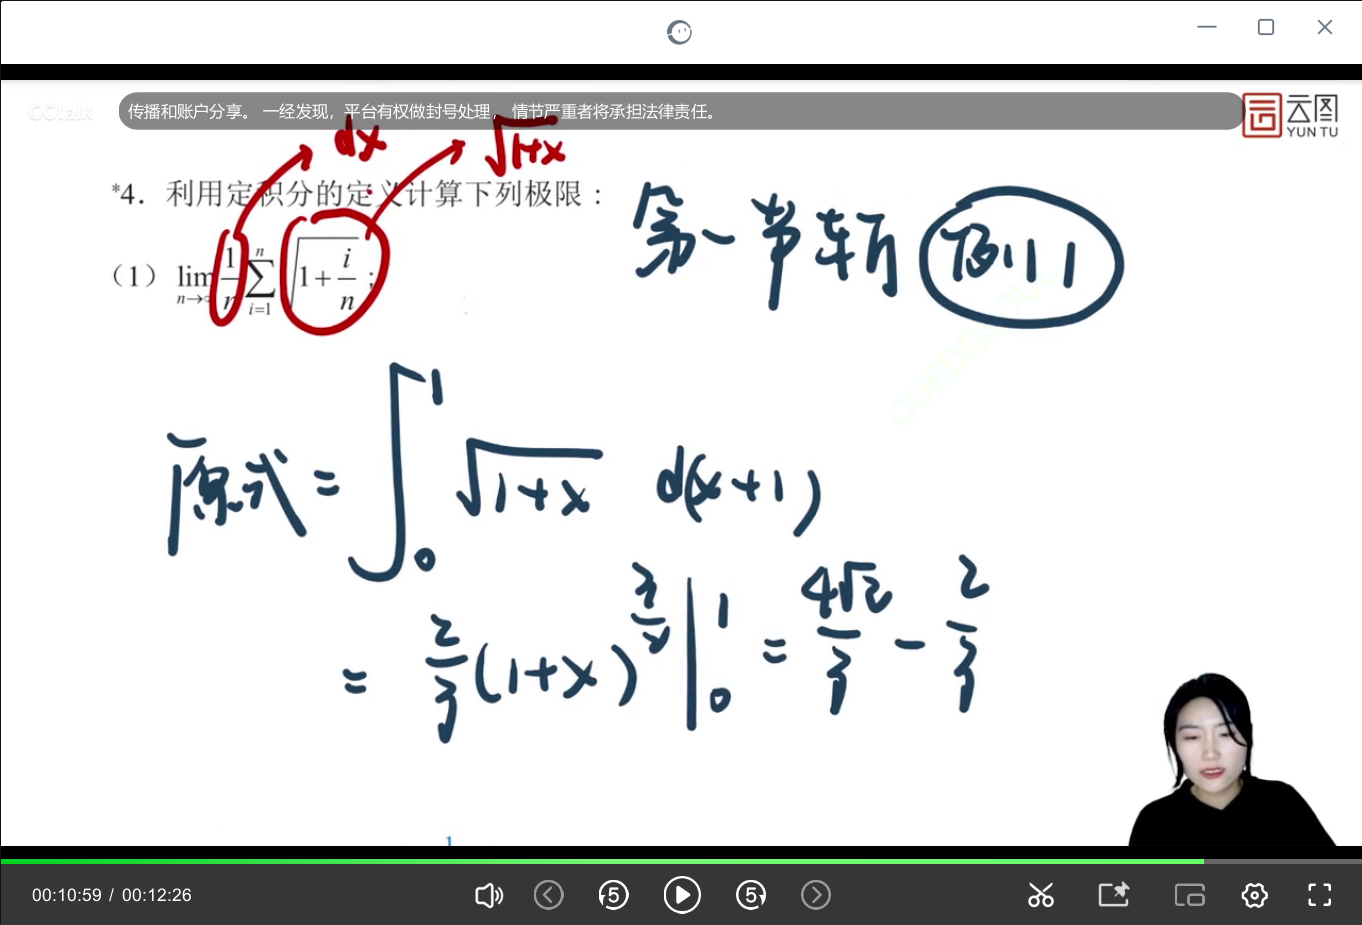 CCtalk
传播和账户分享。 一经发现，平台有权做封号处理， 情节严重者将承担法律责任。
云图
YUN TU
dx
√1+x
*4. 利用定积分的定义计算下列极限：
第一节
例11
(1) lim n→∞ 1/n ∑ n i=1 √1+i/n ;
原式 = ∫₀¹ √1+x d(x+1)
= 2/3 (1+x)^3/2 |₀¹ = 4√2/3 − 2/3
00:10:59 / 00:12:26
5
5